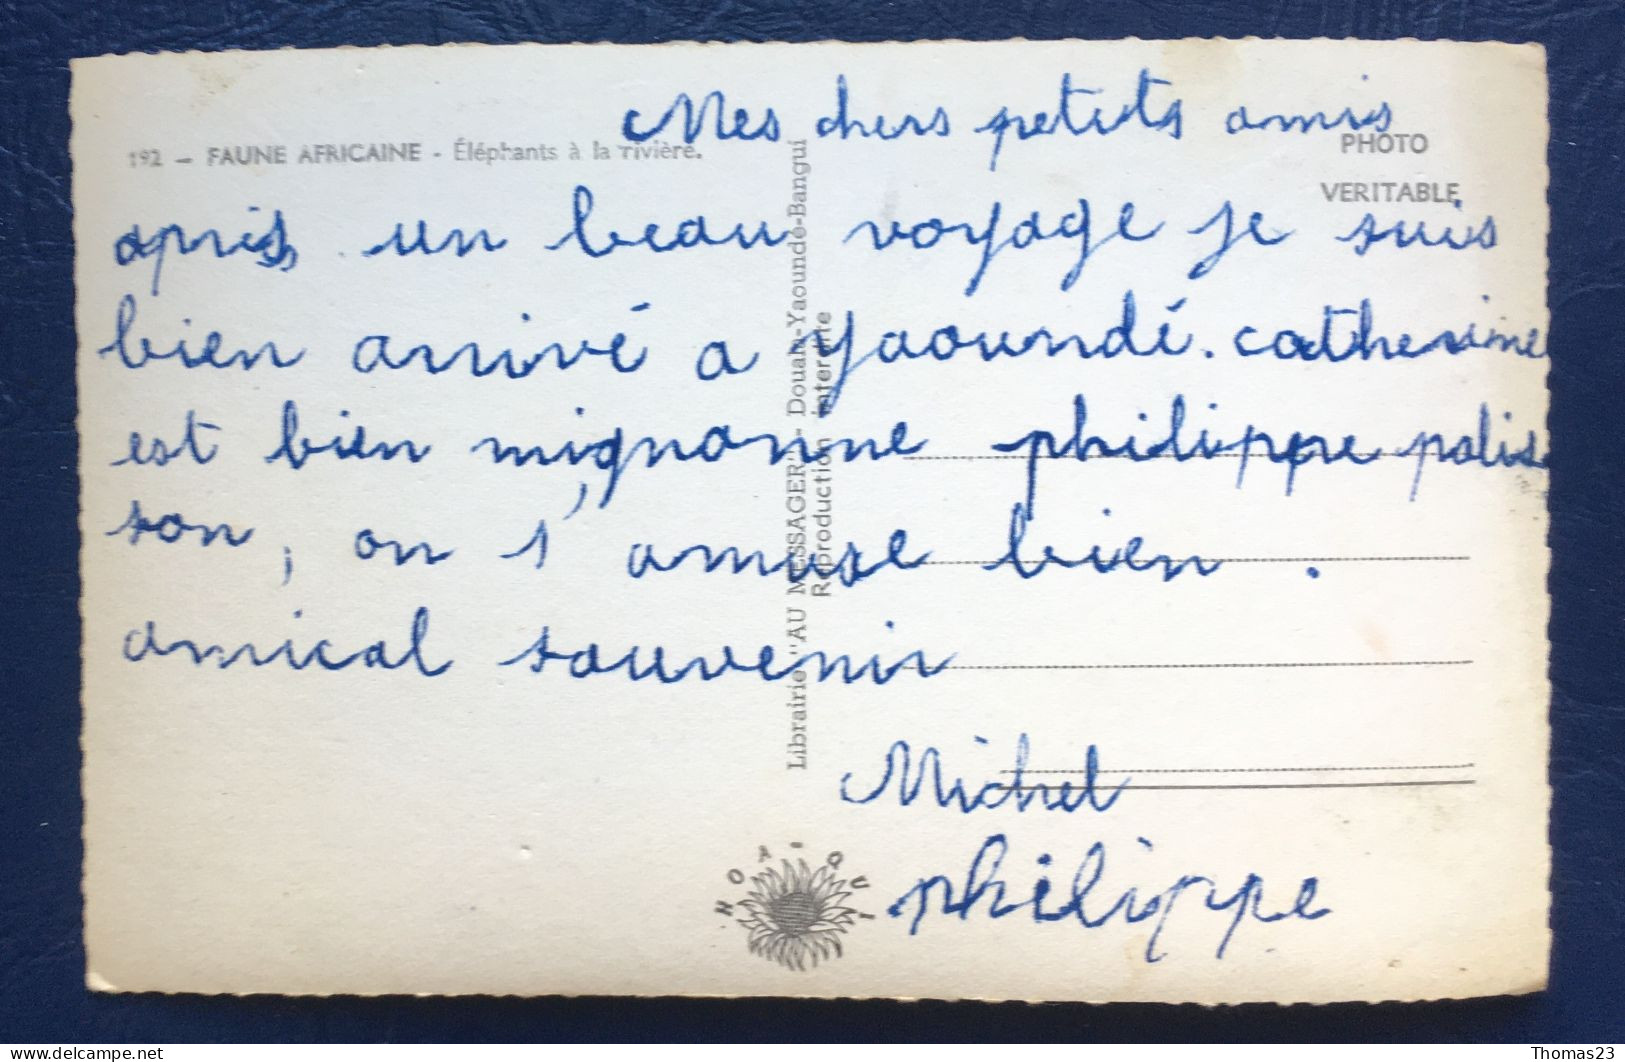 Mes chers petits amis
192 — FAUNE AFRICAINE - Éléphants à la rivière.
PHOTO
VERITABLE
après un beau voyage je suis
bien arrivé a Yaoundé. catherine
est bien mignonne philippe polis
son, on s'amuse bien.
amical souvenir
Michel
philippe
Librairie "AU MESSAGER" - Douala-Yaoundé-Bangui
Reproduction interdite
HOA-QUI
Thomas23